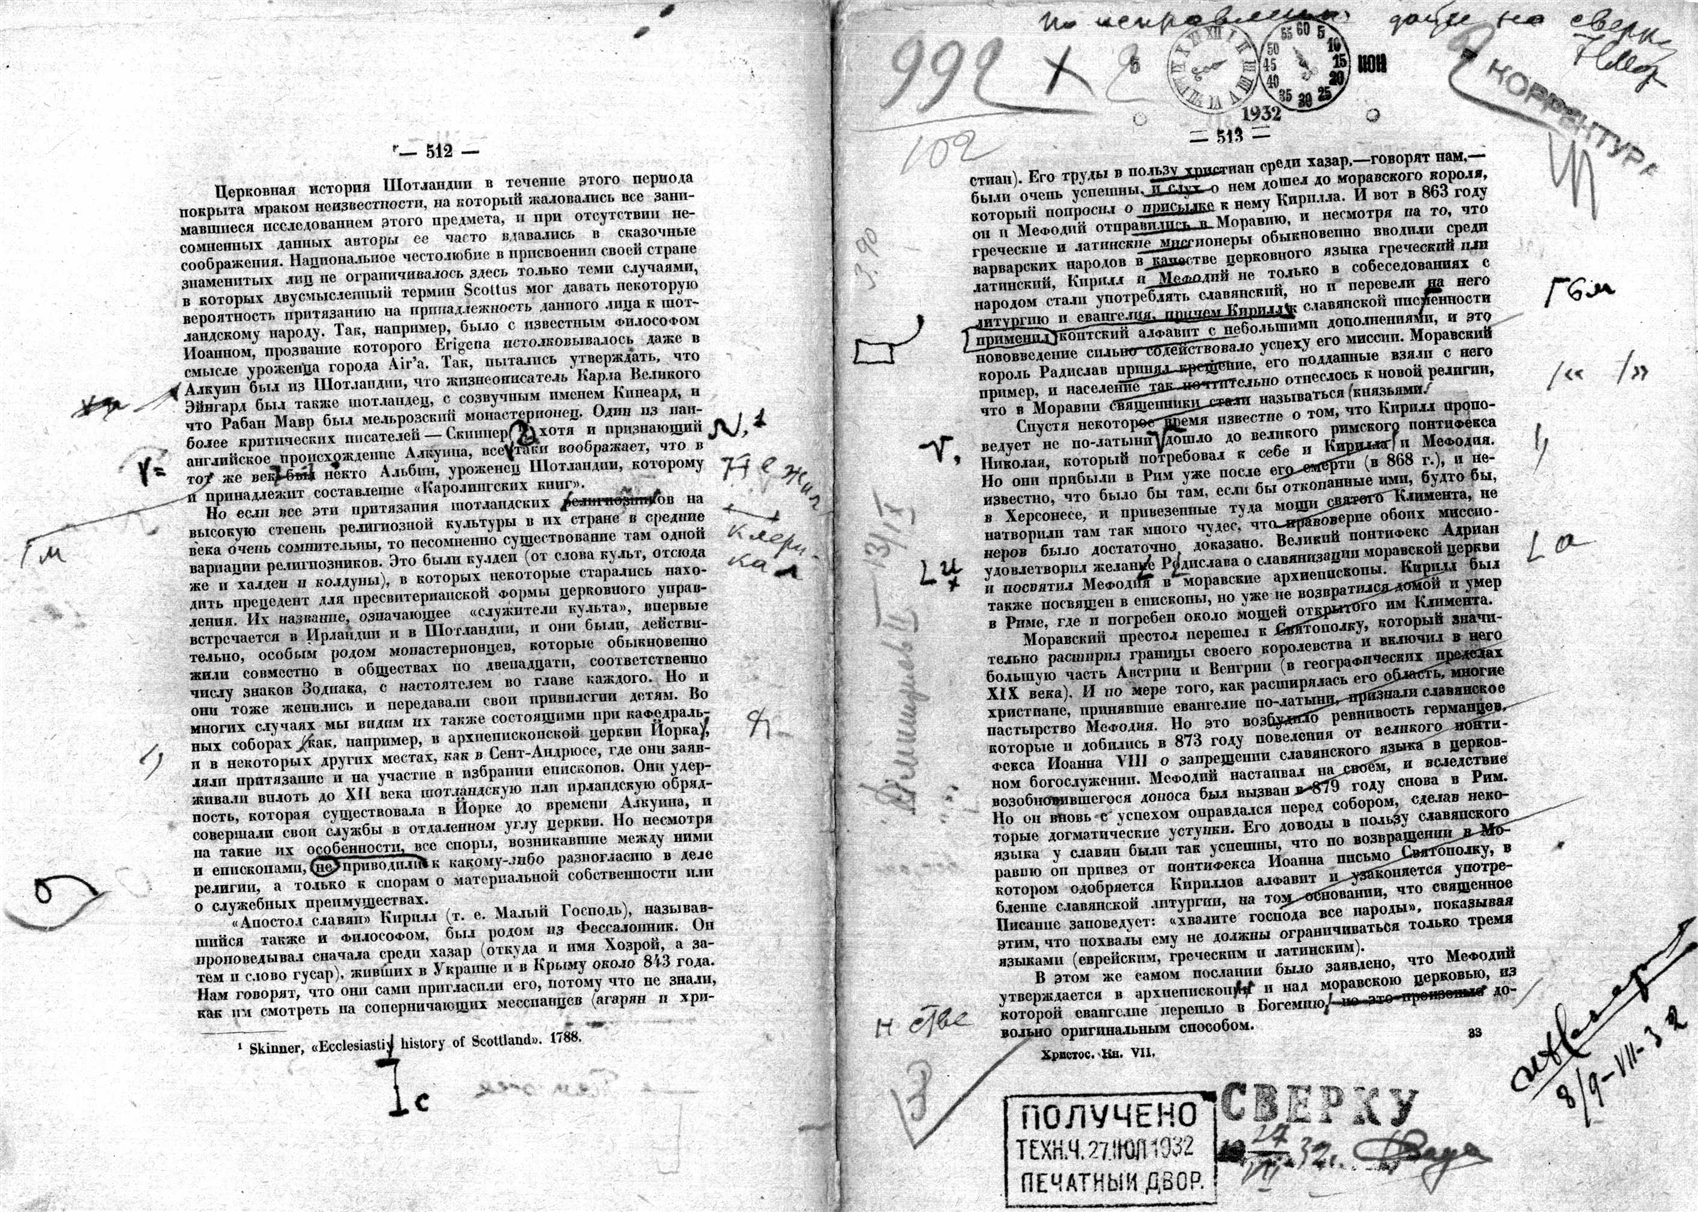 — 512 —
Церковная история Шотландии в течение этого периода
покрыта мраком неизвестности, на который жаловались все зани-
мавшиеся исследованием этого предмета, и при отсутствии не-
сомненных данных авторы ее часто вдавались в сказочные
соображения. Национальное честолюбие в присвоении своей стране
знаменитых лиц не ограничивалось здесь только теми случаями,
в которых двусмысленный термин Scottus мог давать некоторую
вероятность притязанию на принадлежность данного лица к шот-
ландскому народу. Так, например, было с известным философом
Иоанном, прозвание которого Erigena истолковывалось даже в
смысле уроженца города Air'a. Так, пытались утверждать, что
Алкуин был из Шотландии, что жизнеописатель Карла Великого
Эйнгард был также шотландец, с созвучным именем Кинеард, и
что Рабан Мавр был мельрозский монастерионец. Один из наи-
более критических писателей — Скиннер хотя и признающий
английское происхождение Алкуина, все таки воображает, что в
тот же век был некто Альбин, уроженец Шотландии, которому
и принадлежит составление «Каролингских книг».
Но если все эти притязания шотландских религиозников на
высокую степень религиозной культуры в их стране в средние
века очень сомнительны, то несомненно существование там одной
вариации религиозников. Это были кулдеи (от слова культ, отсюда
же и халдеи и колдуны), в которых некоторые старались нахо-
дить прецедент для пресвитерианской формы церковного управ-
ления. Их название, означающее «служители культа», впервые
встречается в Ирландии и в Шотландии, и они были, действи-
тельно, особым родом монастерионцев, которые обыкновенно
жили совместно в обществах по двенадцати, соответственно
числу знаков Зодиака, с настоятелем во главе каждого. Но и
они тоже женились и передавали свои привилегии детям. Во
многих случаях мы видим их также состоящими при кафедраль-
ных соборах как, например, в архиепископской церкви Йорка,
и в некоторых других местах, как в Сент-Андрюсе, где они заяв-
ляли притязание и на участие в избрании епископов. Они удер-
живали вплоть до XII века шотландскую или ирландскую обряд-
ность, которая существовала в Йорке до времени Алкуина, и
совершали свои службы в отдаленном углу церкви. Но несмотря
на такие их особенности, все споры, возникавшие между ними
и епископами, не приводили к какому-либо разногласию в деле
религии, а только к спорам о материальной собственности или
о служебных преимуществах.
«Апостол славян» Кирилл (т. е. Малый Господь), называв-
шийся также и философом, был родом из Фессалоник. Он
проповедывал сначала среди хазар (откуда и имя Хозрой, а за-
тем и слово гусар), живших в Украине и в Крыму около 843 года.
Нам говорят, что они сами пригласили его, потому что не знали,
как им смотреть на соперничающих мессианцев (агарян и хри-
¹ Skinner, «Ecclesiastiy history of Scottland». 1788.
Гм
клери-
кал
с
по исправлении дать на сверку
992 ×
102
1932
КОРРЕКТУРА
— 513 —
стиан). Его труды в пользу христиан среди хазар,—говорят нам,—
были очень успешны, и слух о нем дошел до моравского короля,
который попросил о присылке к нему Кирилла. И вот в 863 году
он и Мефодий отправились в Моравию, и несмотря на то, что
греческие и латинские миссионеры обыкновенно вводили среди
варварских народов в качестве церковного языка греческий или
латинский, Кирилл и Мефодий не только в собеседованиях с
народом стали употреблять славянский, но и перевели на него
литургию и евангелия, причем Кирилл к славянской письменности
применил коптский алфавит с небольшими дополнениями, и это
нововведение сильно содействовало успеху его миссии. Моравский
король Радислав принял крещение, его подданные взяли с него
пример, и население так почтительно отнеслось к новой религии,
что в Моравии священники стали называться князьями.
Спустя некоторое время известие о том, что Кирилл пропо-
ведует не по-латыни дошло до великого римского понтифекса
Николая, который потребовал к себе и Кирилла и Мефодия.
Но они прибыли в Рим уже после его смерти (в 868 г.), и не-
известно, что было бы там, если бы откопанные ими, будто бы,
в Херсонесе, и привезенные туда мощи святого Климента, не
натворили там так много чудес, что правоверие обоих миссио-
неров было достаточно доказано. Великий понтифекс Адриан
удовлетворил желание Родислава о славянизации моравской церкви
и посвятил Мефодия в моравские архиепископы. Кирилл был
также посвящен в епископы, но уже не возвратился домой и умер
в Риме, где и погребен около мощей открытого им Климента.
Моравский престол перешел к Святополку, который значи-
тельно расширил границы своего королевства и включил в него
большую часть Австрии и Венгрии (в географических пределах
XIX века). И по мере того, как расширялась его область, многие
христиане, принявшие евангелие по-латыни, признали славянское
пастырство Мефодия. Но это возбудило ревнивость германцев,
которые и добились в 873 году повеления от великого понти-
фекса Иоанна VIII о запрещении славянского языка в церков-
ном богослужении. Мефодий настаивал на своем, и вследствие
возобновившегося доноса был вызван в 879 году снова в Рим.
Но он вновь с успехом оправдался перед собором, сделав неко-
торые догматические уступки. Его доводы в пользу славянского
языка у славян были так успешны, что по возвращении в Мо-
равию он привез от понтифекса Иоанна письмо Святополку, в
котором одобряется Кириллов алфавит и узаконяется употре-
бление славянской литургии, на том основании, что священное
Писание заповедует: «хвалите господа все народы», показывая
этим, что похвалы ему не должны ограничиваться только тремя
языками (еврейским, греческим и латинским).
В этом же самом послании было заявлено, что Мефодий
утверждается в архиепископии и над моравскою церковью, из
которой евангелие перешло в Богемию, но это произошло до-
вольно оригинальным способом.
Христос. Кн. VII.
33
8/9-VII-32
ПОЛУЧЕНО
ТЕХН.Ч. 27 ИЮЛ 1932
ПЕЧАТНЫЙ ДВОР.
СВЕРКУ